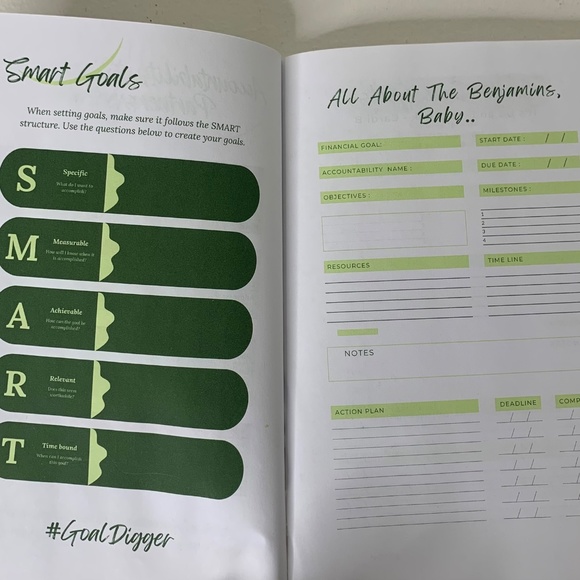 Smart Goals
When setting goals, make sure it follows the SMART
structure. Use the questions below to create your goals.
S
Specific
What do I want to
accomplish?
M
Measurable
How will I know when it
is accomplished?
A
Achievable
How can the goal be
accomplished?
R
Relevant
Does this seem
worthwhile?
T
Time bound
When can I accomplish
this goal?
#GoalDigger
All About The Benjamins,
Baby..
FINANCIAL GOAL:
START DATE : / /
ACCOUNTABILITY NAME :
DUE DATE : / /
OBJECTIVES :
MILESTONES :
1
2
3
4
RESOURCES
TIME LINE
NOTES
ACTION PLAN
DEADLINE
COMP
/ /
/ /
/ /
/ /
/ /
/ /
/ /